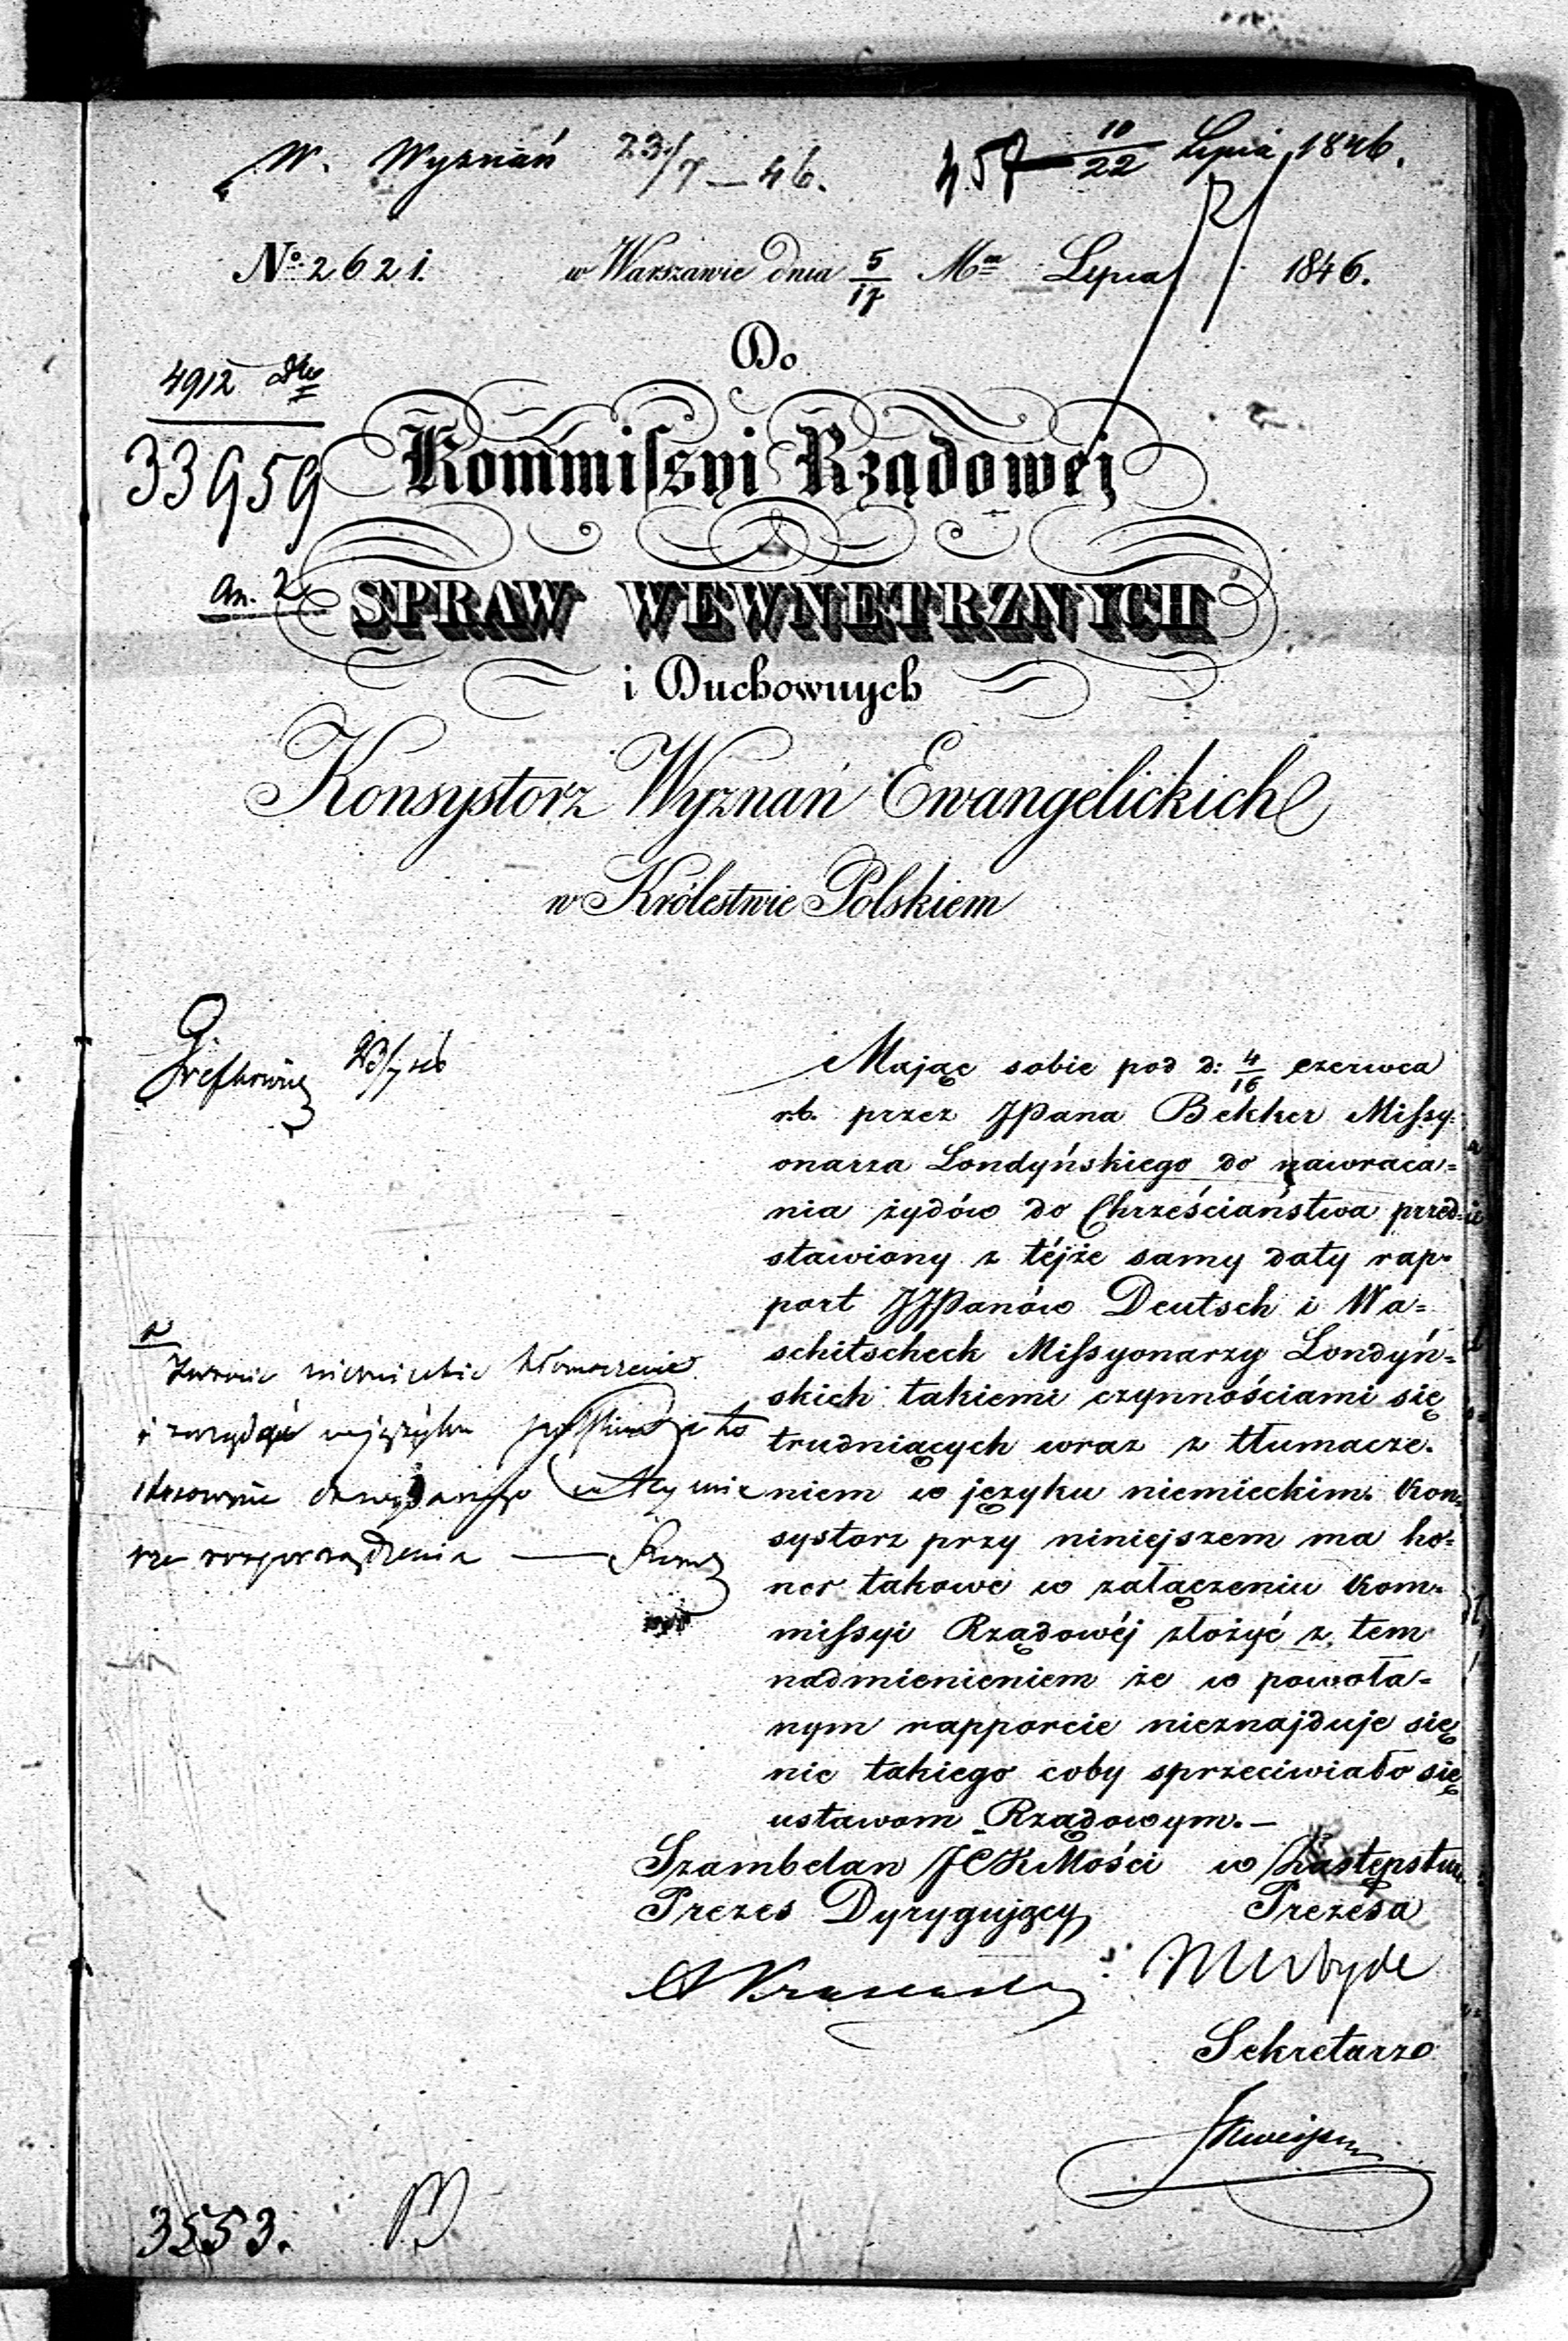 W. Wyznań 23/7 – 46.
10/22 Lipca 1846.
No. 2621. w Warszawie dnia 5/17 Mca Lipca 1846.
Do
4912
33959
Kommissyi Rządowej
an. 2
SPRAW WEWNĘTRZNYCH
i Duchownych
Konsystorz Wyznań Ewangelickich
w Królestwie Polskiem
23/7 46
Mając sobie pod d: 4/16 czerwca
r.b. przez JPana Bekker Missy-
onarza Londyńskiego do nawraca=
nia żydów do Chrześciaństwa przed=
stawiony z téjże samy daty rap=
port JJPanów Deutsch i Wa=
schitscheck Missyonarzy Londyń=
skich takiemi czynnościami się
trudniących wraz z tłumacze=
niem w języku niemieckim. Kon=
systorz przy niniejszem ma ho=
nor takowe w załączeniu Kom=
missyi Rządowéj złożyć z tem
nadmienieniem że w powoła=
nym rapporcie nieznajduje się
nic takiego coby sprzeciwiało się
ustawom Rządowym.—
niemieckie tłomaczenie
rozporządzenia —
Szambelan JCKMości w Zastępstwie
Prezes Dyrygujący Prezesa
Sekretarz
3553.